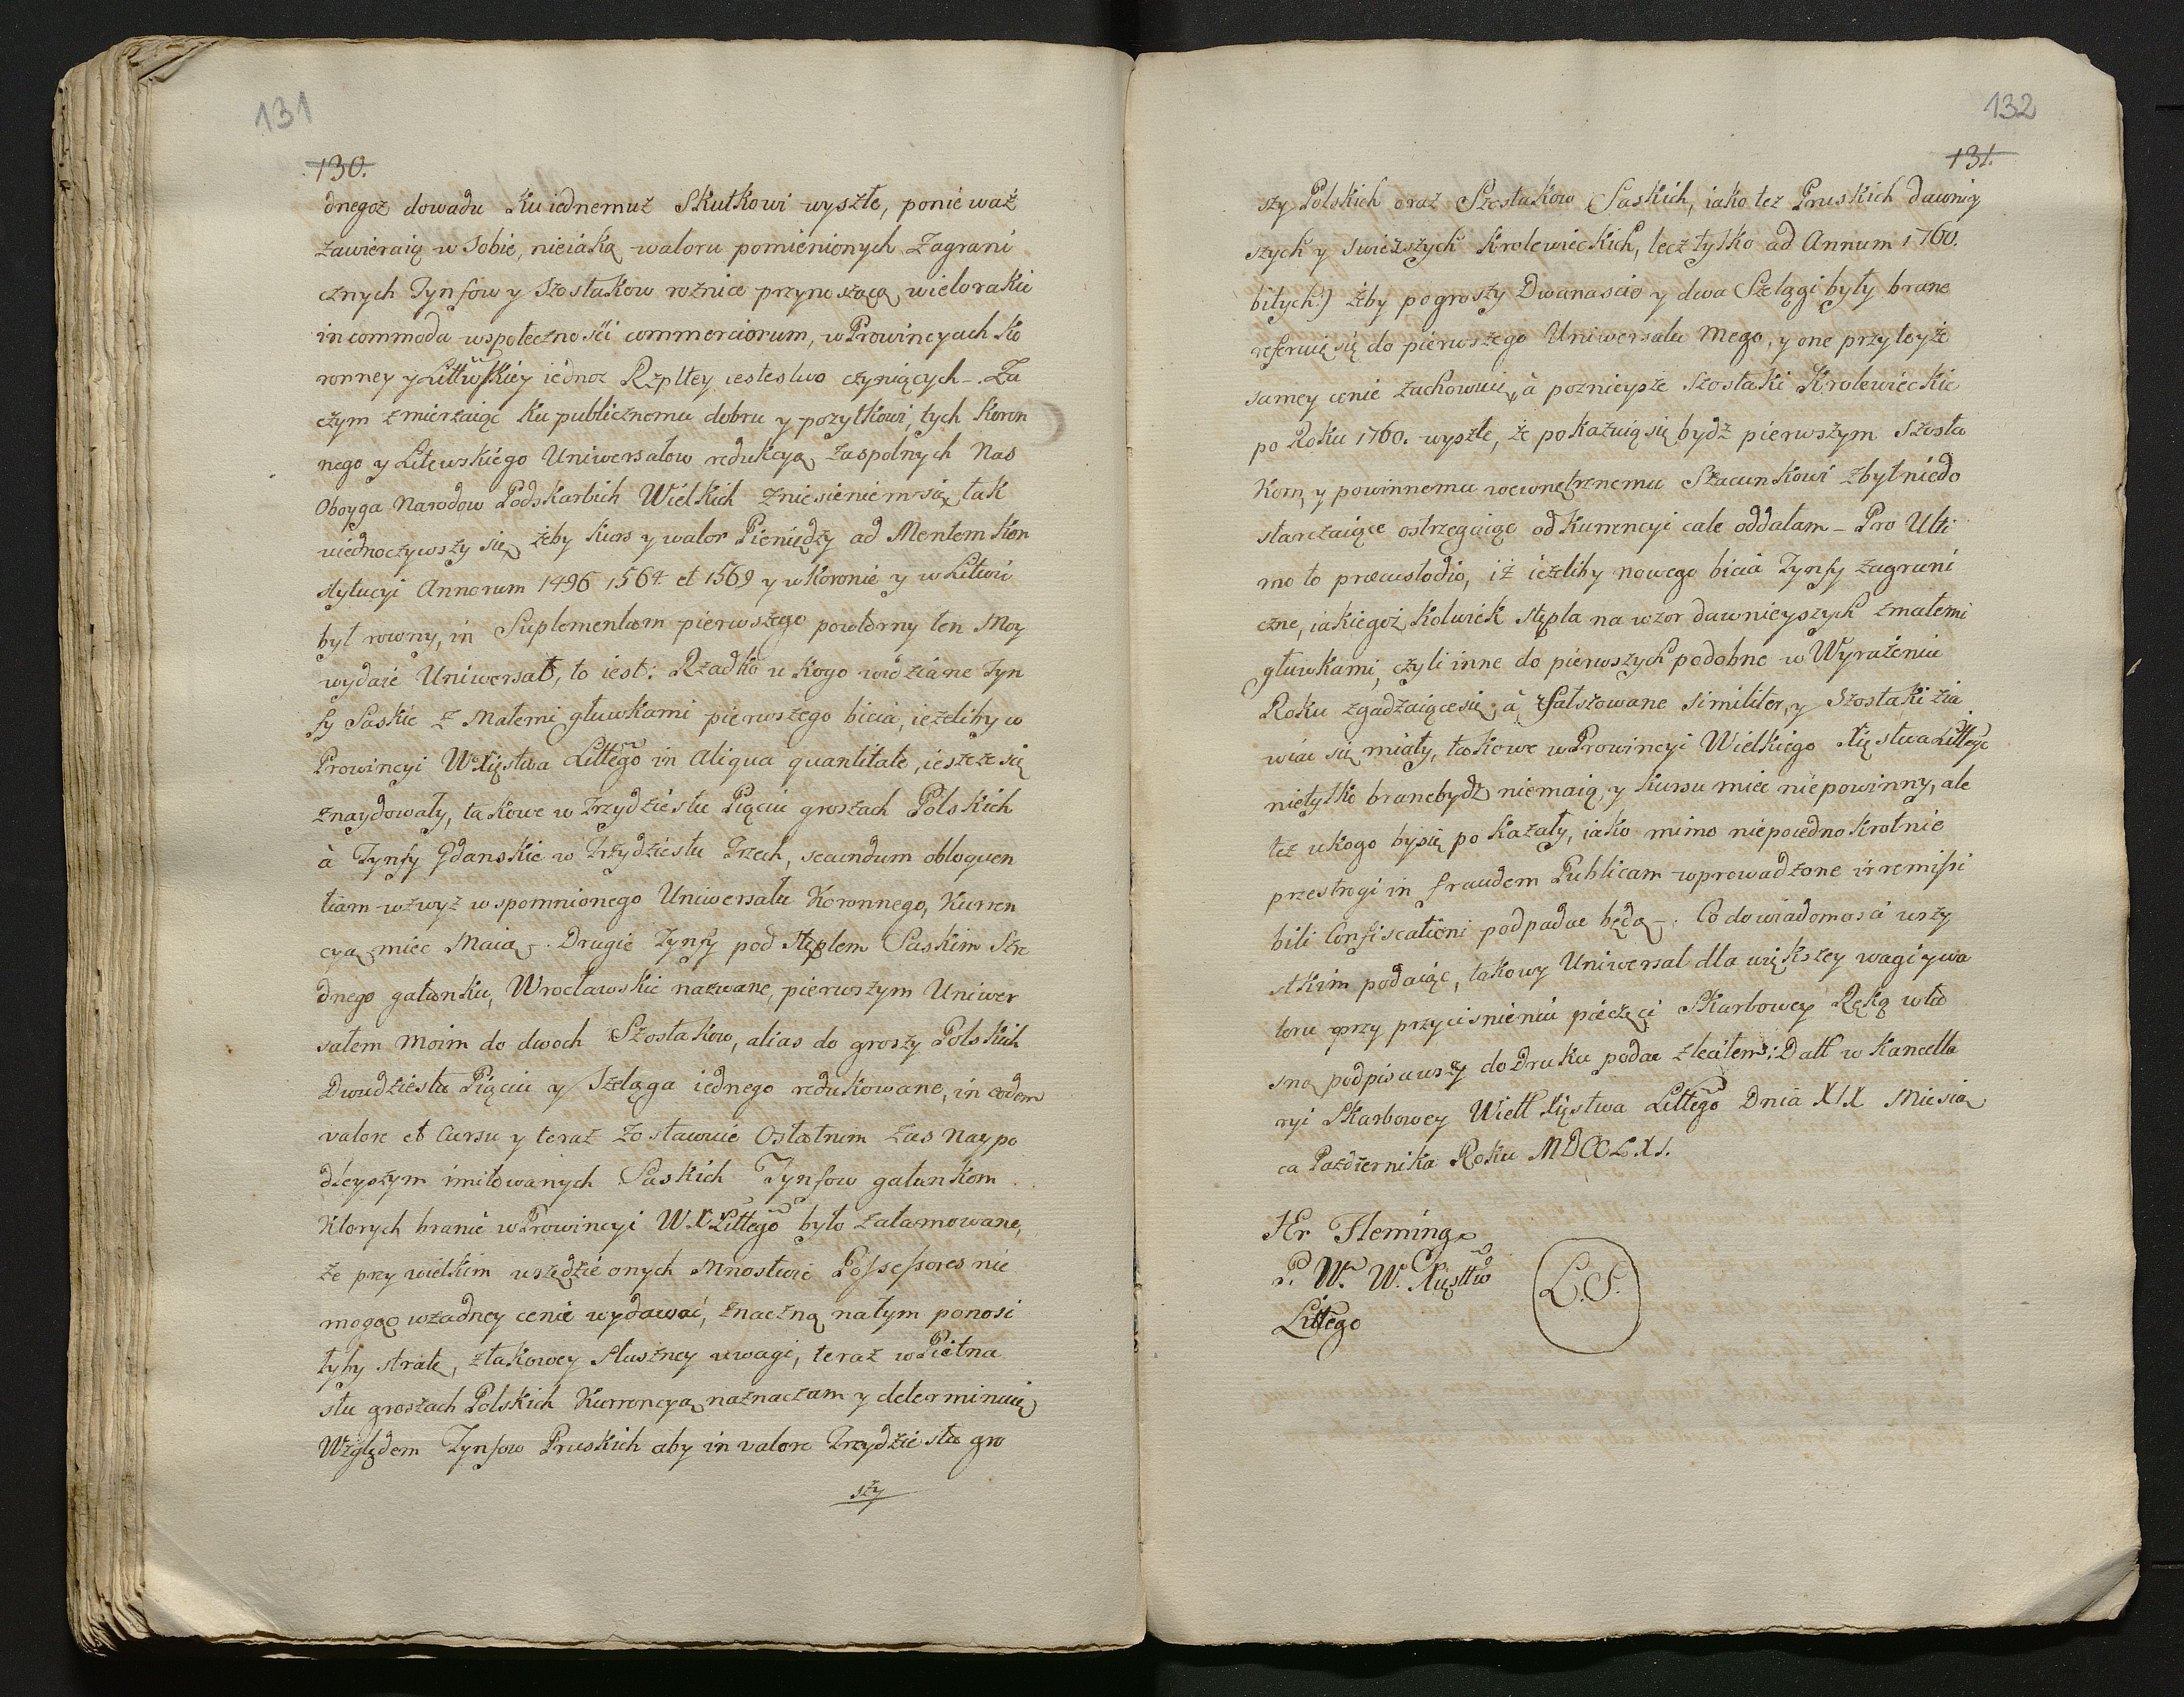 131
130.
dnegoz dowadu Ku iednemuż Skutkowi wyszłe, ponieważ
zawieraią w Sobie, nieiaką waloru pomienionych Zagrani
cznych Tynfow y Szostakow rożnice przynoszącą wielorakie
incommoda wspołecznosci commerciorum, w Prowincyach Ko
ronney y Littwskiey iednoz Rzpltey iestestwo czyniących. Za
czym zmierzaiąc Ku publicznemu dobru y pozytkowi, tych Koron
nego y Litewskiego Uniwersałow redukcyą zaspolnych Nas
Oboyga Narodow Podskarbich Wielkich zniesieniem się tak
ujednoczywszy się, żeby kurs y walor Pieniędzy ad Mentem Kon
stytucyi Annorum 1496 1564 et 1569 y w Koronie y w Litwie
był rowny, in Suplementum pierwszego powtorny ten Moy
wydaie Uniwersał, to iest: Rzadko u kogo widziane Tyn
fy Saskie z Małemi głuwkami pierwszego bicia, ieżeliby w
Prowincyi W Xięstwa Littego in aliqua quantitate, ieszcze się
znaydowały, takowe w Trzydziestu Pięciu groszach Polskich
à Tynfy Gdanskie w Trzydziestu Trzech, secundum obloquen
tiam wzwyż wspomnionego Uniwersału Koronnego, Kurren
cyą mieć Maią. Drugie Tynfy pod Stęplem Saskim Śre
dnego gatunku, Wrocławskie nazwane, pierwszym Uniwer
sałem Moim do dwoch Szostakow, alias do groszy Polskich
Dwudziestu Pięciu y Szeląga iednego redukowane, in eodem
valore et Cursu y teraz zostawuie Ostatnim zas Naypo
dleyszym imitowanych Saskich Tynfow gatunkom
Ktorych branie w Prowincyi W. X Littego było zatamowane,
że przy wielkim wszędzie onych Mnostwie Possessores nie
mogąc w żadney cenie wydawać, znaczną na tym ponosi
łyby stratę, z takowey Słuszney uwagi, teraz w Piętna
stu groszach Polskich Kurrencyą naznaczam y determinuię
Względem Tynfow Pruskich aby in valore Trzydziestu gro
szy
132
131.
szy Polskich oraz Szostakow Saskich, iako tez Pruskich dawniey
szych y swieższych Krolewieckich, lecz tylko ad Annum 1760.
bitych) żeby pogroszy Dwanascie y dwa Szelągi były brane
referuię się do pierwszego Uniwersału Mego, y one przy teyże
samey cenie zachowuię, à poznieysze Szostaki Krolewieckie
po Roku 1760. wyszłe, że pokazuią się bydź pierwszym Szosta
kom, y powinnemu wewnętrznemu Szacunkowi zbyt niedo
starczaiące ostrzegaiąc od Kurrencyi cale oddalam. Pro Ulti
mo to præcustodio, iż ieżeliby nowego bicia Tynfy zagrani
czne, iakiegoż kolwiek Stępla na wzor dawnieyszych z małemi
głuwkami, czyli inne do pierwszych podobne w Wyrażeniu
Roku zgadzaiące się, à sfałszowane similiter, y Szostaki zia
wiać się miały, takowe w Prowincyi Wielkiego Xięstwa Littego
nietylko brane bydź niemaią y kursu mieć niepowinny, ale
też ukogo by się pokazały, iako mimo niepoiednokrotnie
przestrogi in fraudem Publicam wprowadzone irremissi
bili Confiscationi podpadać będą. Co do wiadomosci wszy
stkim podaiąc, takowy Uniwersał dla większey wagi y wa
loru przy przycisnieniu pieczęci Skarbowey Ręką wła
sną podpisawszy do Druku podać zleciłem: Datt w Kancella
ryi Skarbowey Wiell Xięstwa Littego Dnia XIX Miesią
ca Pazdziernika Roku MDCCLXI.
Hr Fleming
P. W. W. Xięsttw
Littego
L.S.